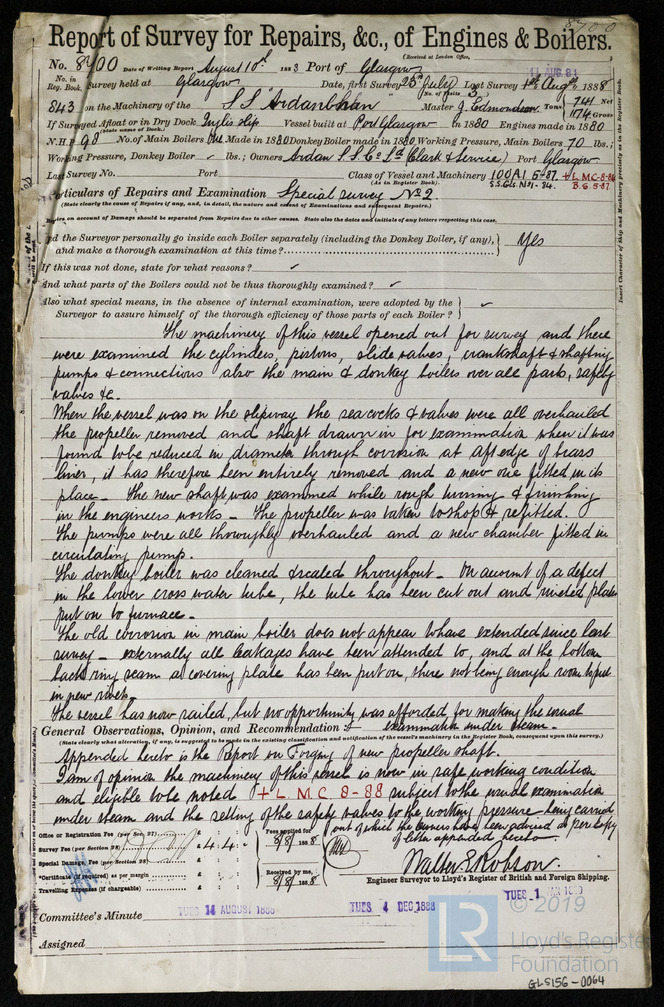 8700
Report of Survey for Repairs, &c., of Engines & Boilers.
(Received at London Office,
No. 8700 Date of Writing Report August 10th 1883 Port of Glasgow
No. in Reg. Book. Survey held at Glasgow Date, first Survey 25th July Last Survey 1st Augt 1888
(No. of Visits 3)
843 on the Machinery of the S S "Ardanbhan" Master J. Edmondson Tons 741 Net 1174 Gross
If Surveyed Afloat or in Dry Dock Inglis slip Vessel built at Port Glasgow in 1880 Engines made in 1880
(State name of Dock.)
N.H.P. 98 No. of Main Boilers One Made in 1880 Donkey Boiler made in 1880 Working Pressure, Main Boilers 70 lbs;
Working Pressure, Donkey Boiler lbs.; Owners Ardan S.S. Co Ld (Clark & Service) Port Glasgow
Last Survey No. Port Class of Vessel and Machinery 100A1 5-87 + L.M.C-8-84
(As in Register Book). S.S. Gls. No1-84. B.S. 5.87.
Particulars of Repairs and Examination Special survey No 2.
(State clearly the cause of Repairs if any, and, in detail, the nature and extent of Examinations and subsequent Repairs.)
Repairs on account of Damage should be separated from Repairs due to other causes. State also the dates and initials of any letters respecting this case.
Did the Surveyor personally go inside each Boiler separately (including the Donkey Boiler, if any), and make a thorough examination at this time? Yes
If this was not done, state for what reasons? ✓
And what parts of the Boilers could not be thus thoroughly examined? ✓
Also what special means, in the absence of internal examination, were adopted by the
Surveyor to assure himself of the thorough efficiency of those parts of each Boiler? ✓
The machinery of this vessel opened out for survey and there
were examined the cylinders, pistons, slide valves, crankshaft & shafting
pumps & connections also the main & donkey boilers over all parts, safety
valves &c.
When the vessel was on the slipway the sea cocks & valves were all overhauled
the propeller removed and shaft drawn in for examination when it was
found to be reduced in diameter through corrosion at aft edge of brass
liner, it has therefore been entirely removed and a new one fitted in its
place — The new shaft was examined while rough turning & finishing
in the engineers works — The propeller was taken to shop & refitted.
The pumps were all thoroughly overhauled and a new chamber fitted in
circulating pump.
The donkey boiler was cleaned & scaled throughout — On account of a defect
in the lower cross water tube, the tube has been cut out and riveted plate
put on to furnace —
The old corrosion in main boiler does not appear to have extended since last
survey — externally all leakages have been attended to, and at the bottom
back ring seam a covering plate has been put on, there not being enough room to put
in new rivets —
The vessel has now sailed, but no opportunity was afforded for making the usual
General Observations, Opinion, and Recommendation:— examination under steam —
(State clearly what alteration, if any, is suggested to be made in the existing classification and notification of the vessel's machinery in the Register Book, consequent upon this survey.)
Appended hereto is the Report on Forging of new propeller shaft.
I am of opinion the machinery of this vessel is now in safe working condition
and eligible to be noted + L M C 8-88 subject to the usual examination
under steam and the setting of the safety valves to the working pressure being carried
out of which the Owners have been advised as per copy
of letter appended hereto —
Office or Registration Fee (per Sec. 27) £ : :
Survey Fee (per Section 28) £ 4 : 4 :
Special Damage Fee (per Section 28) £ : :
*Certificate (if required) as per margin £ : :
Travelling Expenses (if chargeable) £ : :
Fees applied for 8/8/1888
Received by me, 8/8/1888
Walter E. Robson.
Engineer Surveyor to Lloyd's Register of British and Foreign Shipping.
Committee's Minute TUES 14 AUGUST 1888 TUES 4 DEC 1888 TUES 1
Assigned
LR
© 2019
Lloyd's Register
Foundation
GLS156-0064